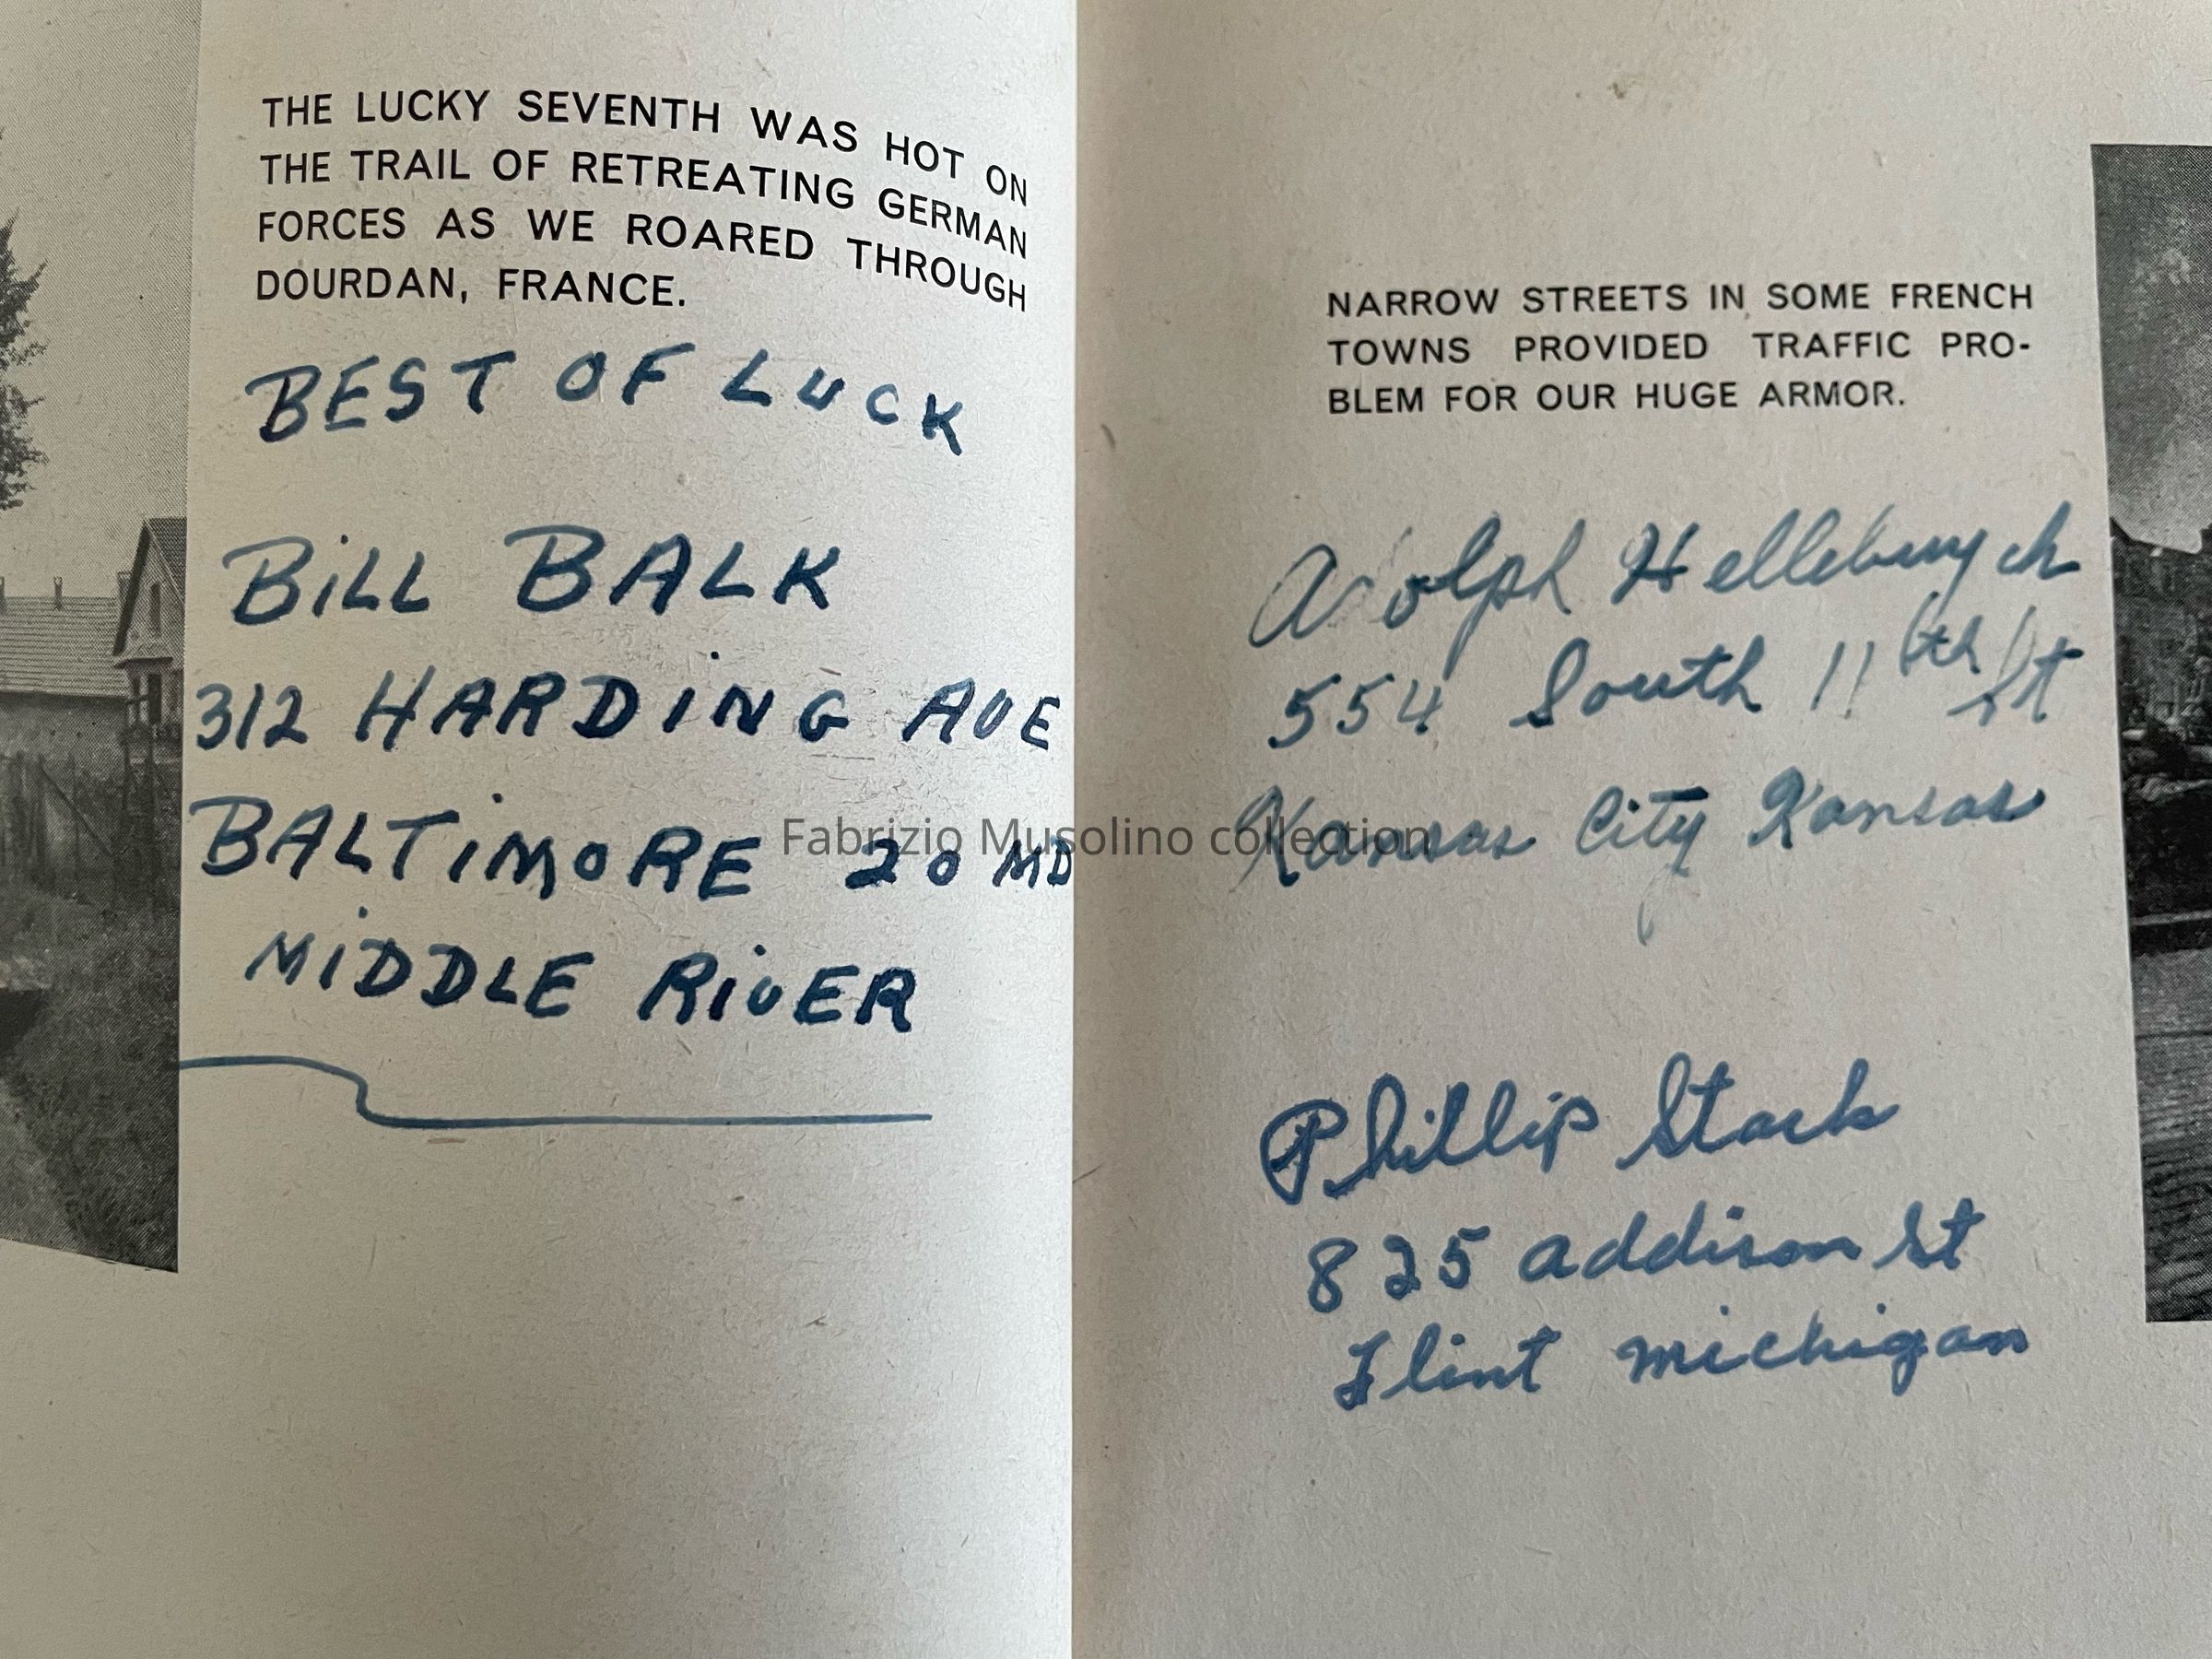 THE LUCKY SEVENTH WAS HOT ON
THE TRAIL OF RETREATING GERMAN
FORCES AS WE ROARED THROUGH
DOURDAN, FRANCE.
BEST OF LUCK
BiLL BALK
312 HARDING AVE
BALTiMORE 20 MD
MiDDLE RiVER
NARROW STREETS IN SOME FRENCH
TOWNS PROVIDED TRAFFIC PRO-
BLEM FOR OUR HUGE ARMOR.
Adolph
554 South 11th St
Kansas City Kansas
Phillip Stack
825 Addison St
Flint Michigan
Fabrizio Musolino collection